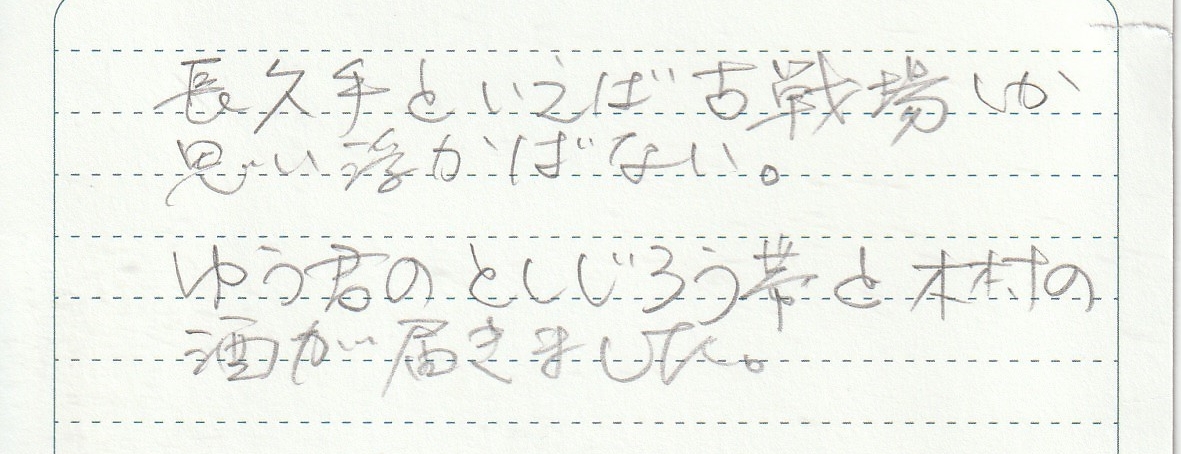 長久手といえば古戦場しか
思い浮かばない。
ゆう君のとしじろう帯と木村の
酒が届きました。